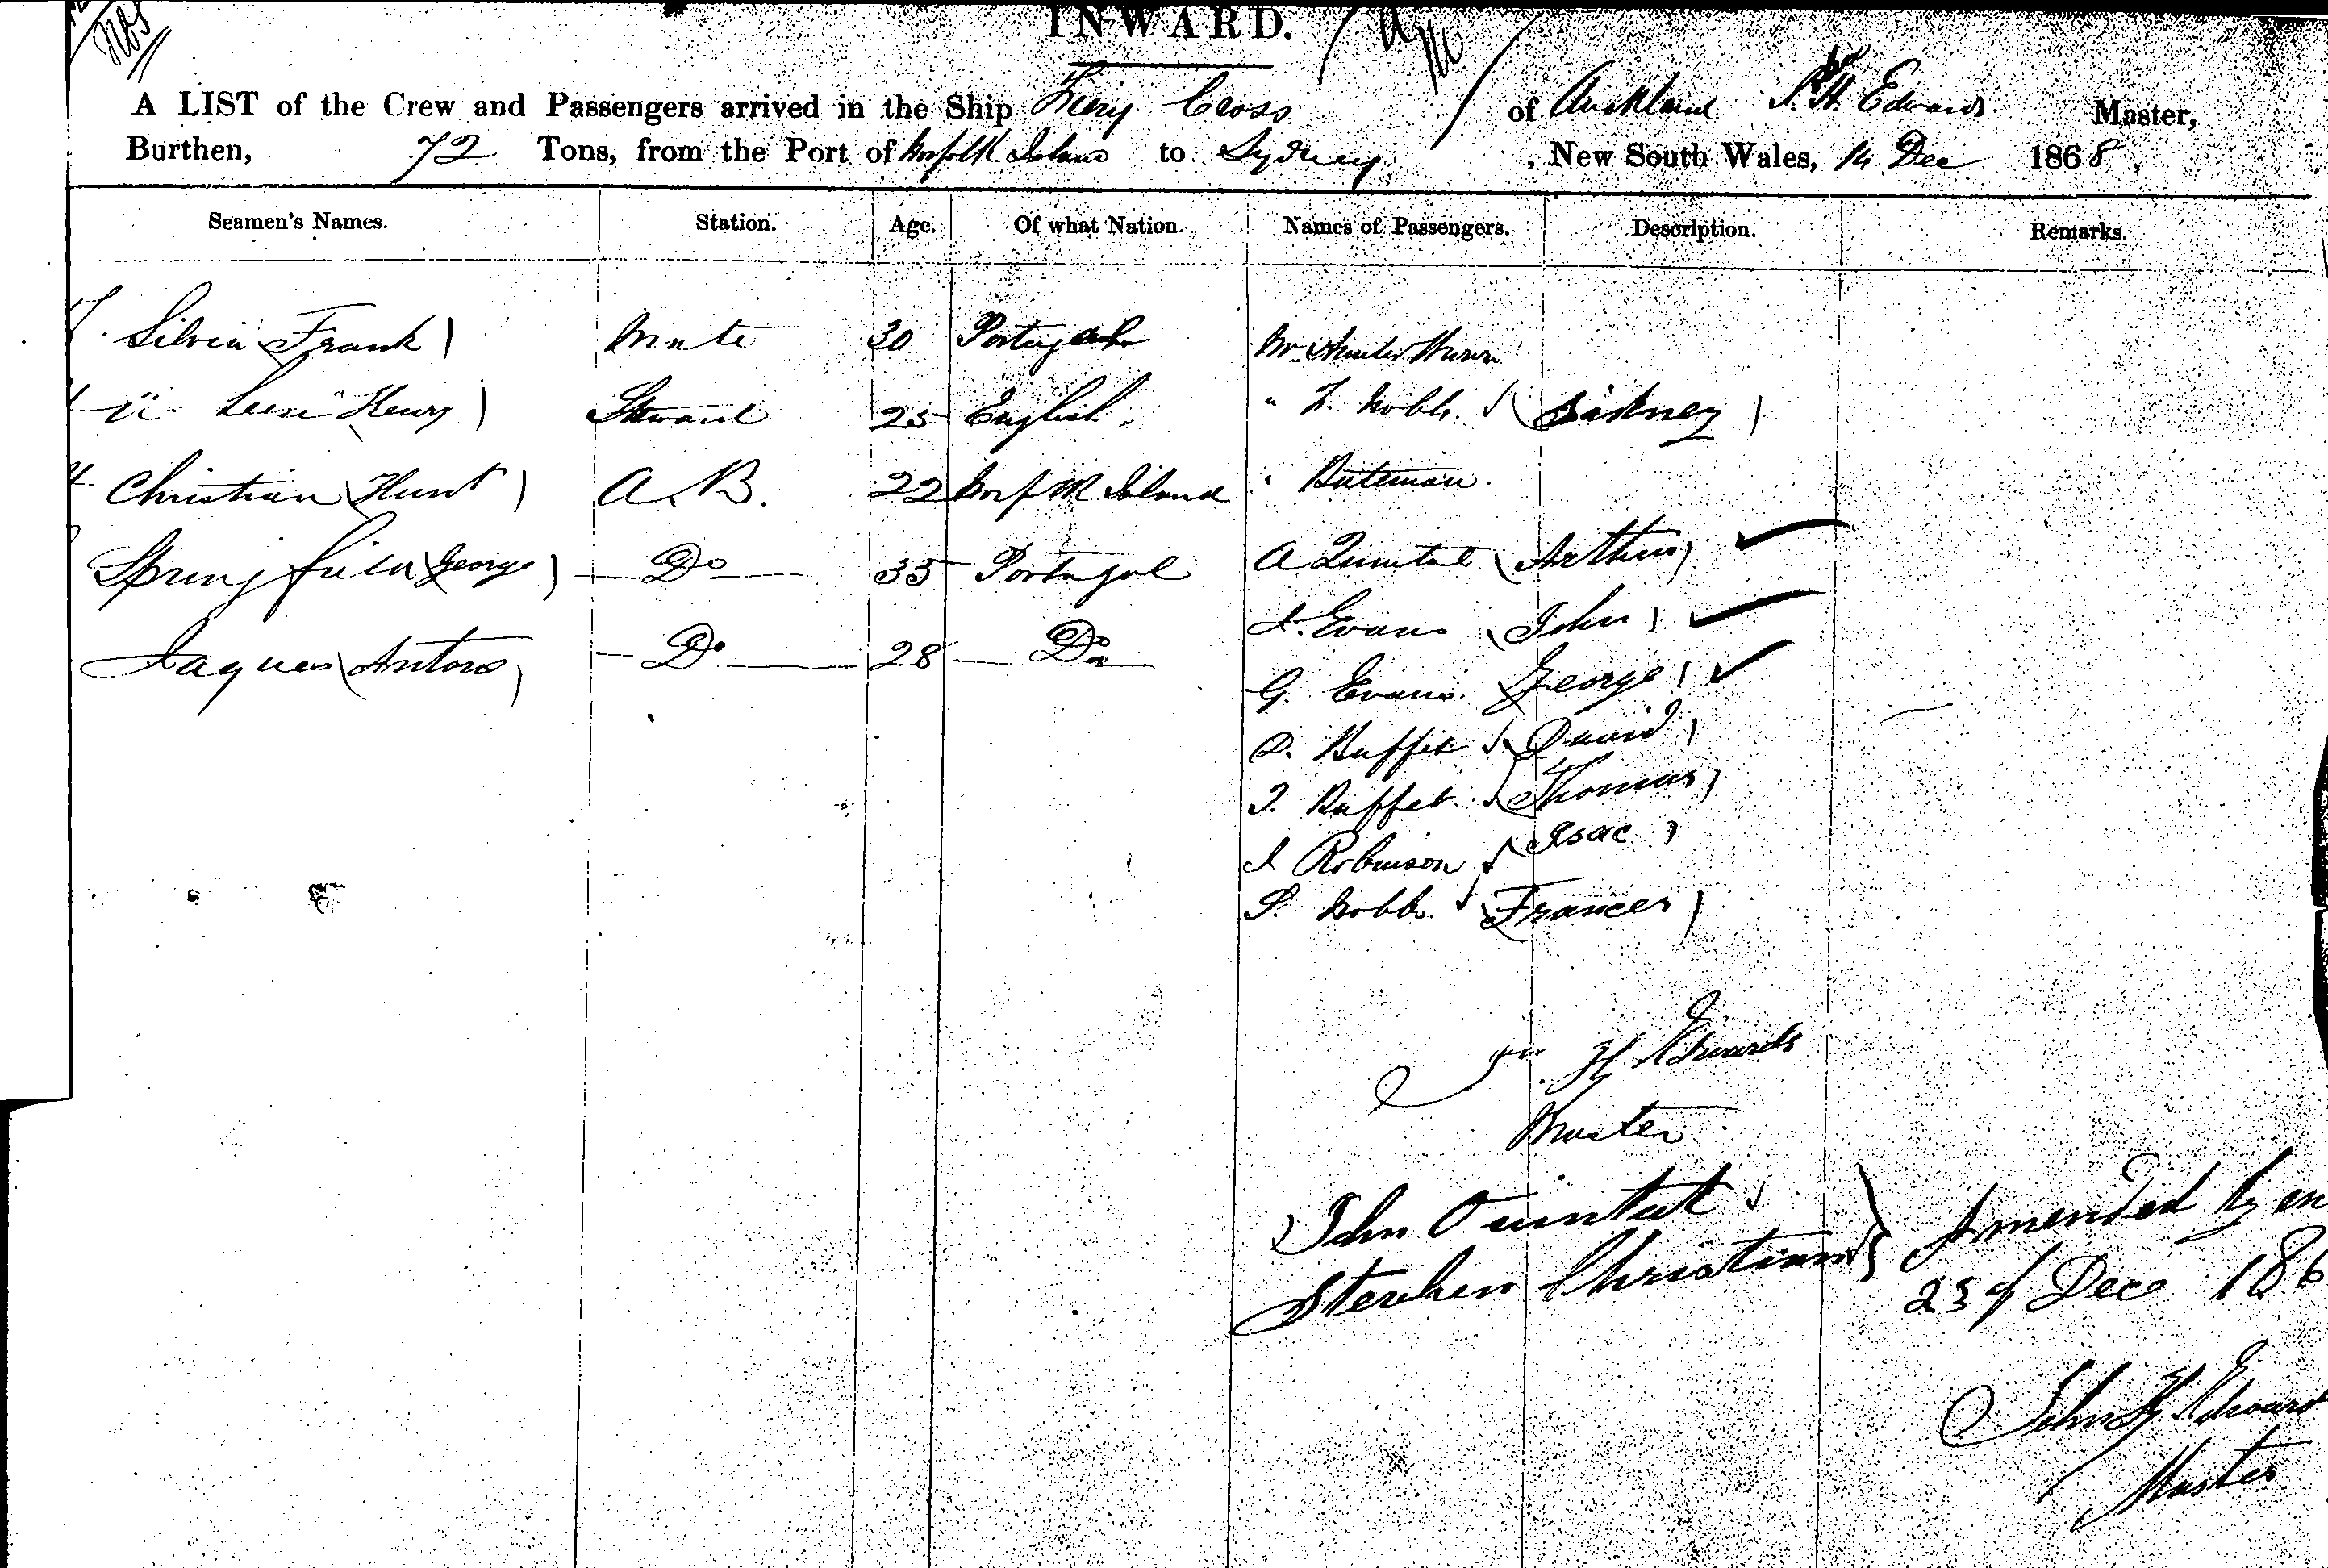 INWARD.
A LIST of the Crew and Passengers arrived in the Ship Fiery Cross of Auckland J. H. Edwards Master,
Burthen, 72 Tons, from the Port of Norfolk Island to Sydney, New South Wales, 14 Dec 1868,
Seamen's Names. Station. Age. Of what Nation. Names of Passengers. Description. Remarks.
Silvia (Frank) Mate 30 Portugal Mr
Henry) Steward 25 English " Nobbs. (Sidney)
Christian (Hunt) A.B. 22 Norfolk Island " Bateman.
Springfield (George) Do 35 Portugal A Quintal (Arthur)
Jaques (Antoro) Do 28 Do J. Evans (John)
G. Evans. (George)
D. Buffet (David)
T. Buffet (Thomas)
I Robinson (Isac)
Nobbs. (Frances)
Jn H Edwards
Master
John Quintal
Stephen Christian } Amended by
23 of Dec 186
John H Edward
Master